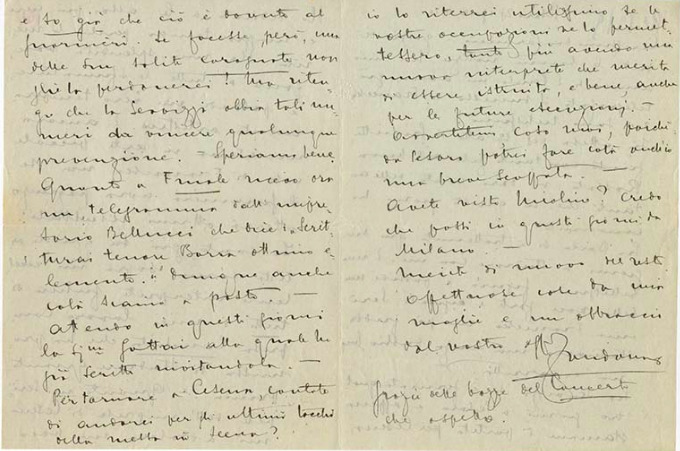 e so già che ciò è dovuto al
se facesse, però, una
delle sue solite carognate non
gliela perdonerei! Ma riten-
go che la Scavizzi abbia tali nu-
meri da vincere qualunque
prevenzione. – Speriamo bene.
Quanto a Finale ricevo ora
un telegramma dall'impre-
sario Bellucci che dice: "Scrit-
turai tenore Barra ottimo e-
lemento." Dunque anche
colà siamo a posto. –
Attendo in questi giorni
la Sig.na alla quale ho
già scritto invitandola. –
Per tornare a Cesena, contate
di andarci per gli ultimi tocchi
della messa in scena?
io lo riterrei utilissimo se le
vostre occupazioni ve lo permet-
tessero, tanto più avendo una
nuova interprete che merita
di essere istruita, e bene, anche
per le future esecuzioni. –
Avvertitemi, così, poiché
da Pesaro potrei fare colà anch'io
una breve scappata. –
Avete visto ? Credo
che passi in questi giorni da
Milano. –
di nuovo del resto
affettuose cose da mia
moglie e un abbraccio
dal vostro aff. Zandonai
grazie delle bozze del Concerto
che aspetto.